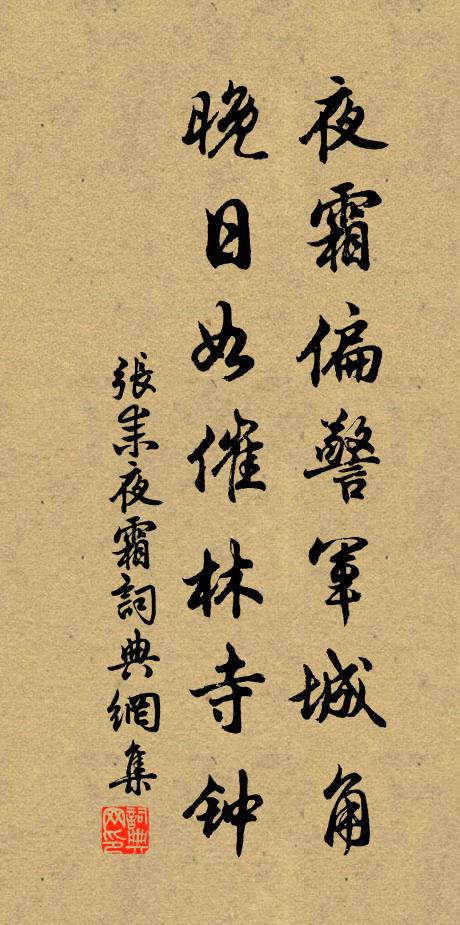 夜霜偏警軍城角
晚日如催林寺钟
張耒夜霜詞典網集
詞典网印